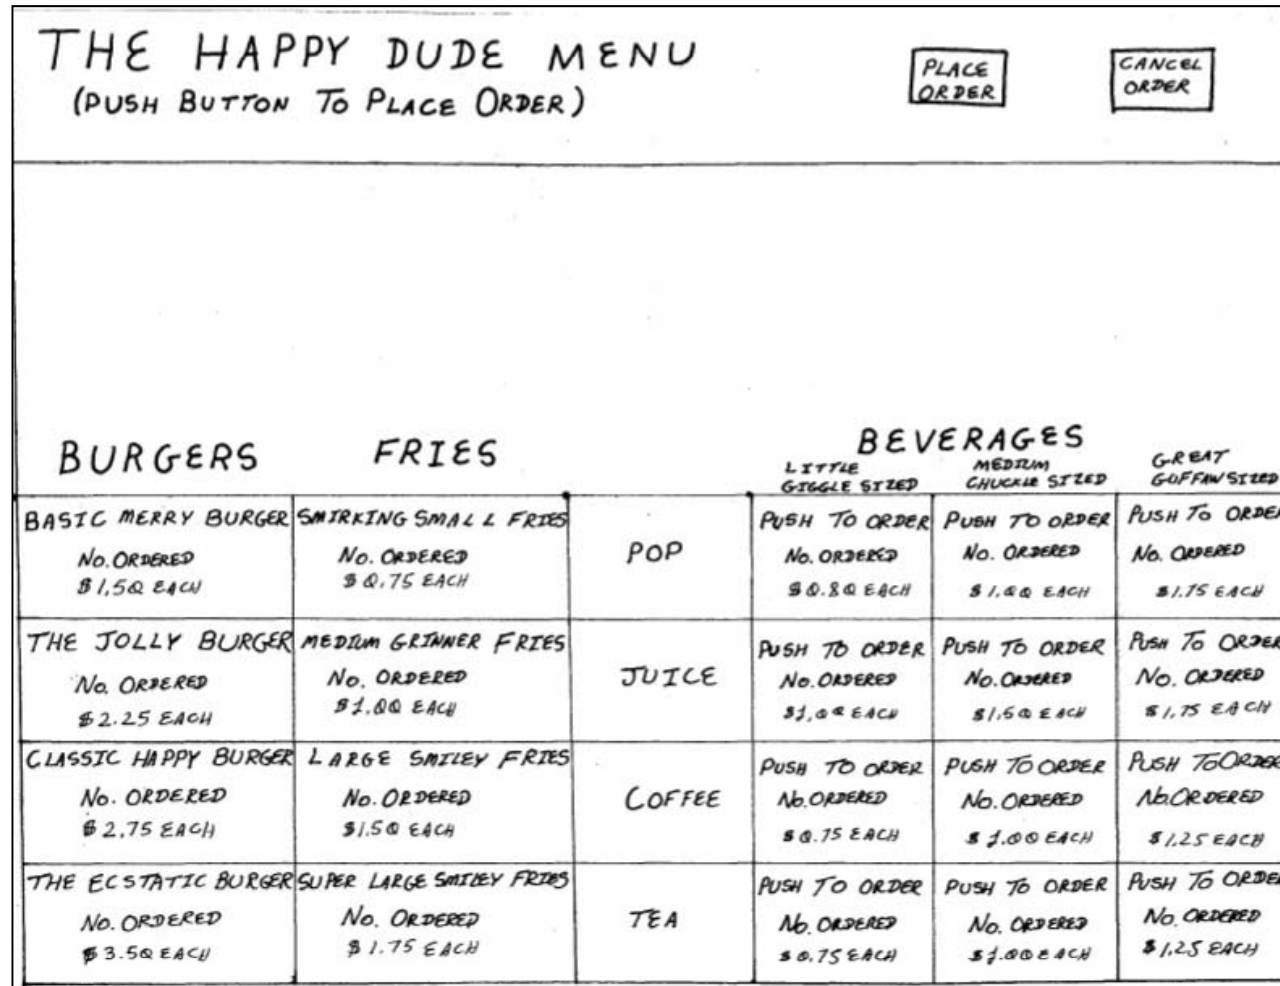 THE HAPPY DUDE MENU
(PUSH BUTTON TO PLACE ORDER)
PLACE
ORDER
CANCEL
ORDER
BURGERS
FRIES
BEVERAGES
LITTLE
GIGGLE SIZED
MEDIUM
CHUCKLE SIZED
GREAT
GUFFAW SIZED
BASIC MERRY BURGER
No. ORDERED
$1.50 EACH
SMIRKING SMALL FRIES
No. ORDERED
$0.75 EACH
POP
PUSH TO ORDER
No. ORDERED
$0.80 EACH
PUSH TO ORDER
No. ORDERED
$1.00 EACH
PUSH TO ORDER
No. ORDERED
$1.75 EACH
THE JOLLY BURGER
No. ORDERED
$2.25 EACH
MEDIUM GRINNER FRIES
No. ORDERED
$1.00 EACH
JUICE
PUSH TO ORDER
No. ORDERED
$1.00 EACH
PUSH TO ORDER
No. ORDERED
$1.50 EACH
PUSH TO ORDER
No. ORDERED
$1.75 EACH
CLASSIC HAPPY BURGER
No. ORDERED
$2.75 EACH
LARGE SMILEY FRIES
No. ORDERED
$1.50 EACH
COFFEE
PUSH TO ORDER
No. ORDERED
$0.75 EACH
PUSH TO ORDER
No. ORDERED
$1.00 EACH
PUSH TO ORDER
No. ORDERED
$1.25 EACH
THE ECSTATIC BURGER
No. ORDERED
$3.50 EACH
SUPER LARGE SMILEY FRIES
No. ORDERED
$1.75 EACH
TEA
PUSH TO ORDER
No. ORDERED
$0.75 EACH
PUSH TO ORDER
No. ORDERED
$1.00 EACH
PUSH TO ORDER
No. ORDERED
$1.25 EACH